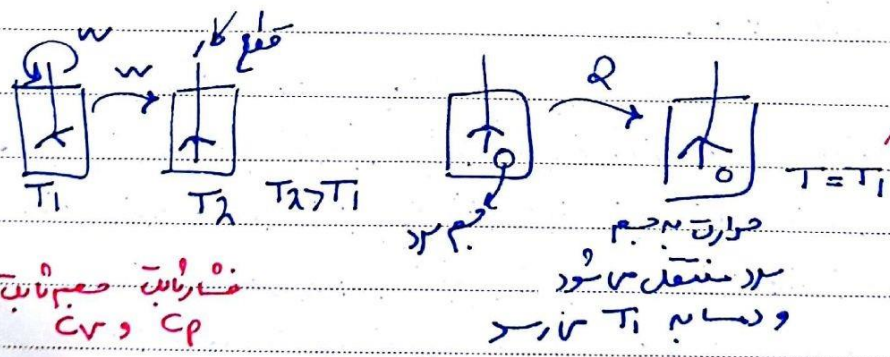 W
قطع کار
W
Q
T1
T2
T2>T1
T=T1
جسم سرد
حرارت به جسم
سرد منتقل می شود
و دما به T1 می رسد
فشار ثابت حجم ثابت
Cv و Cp